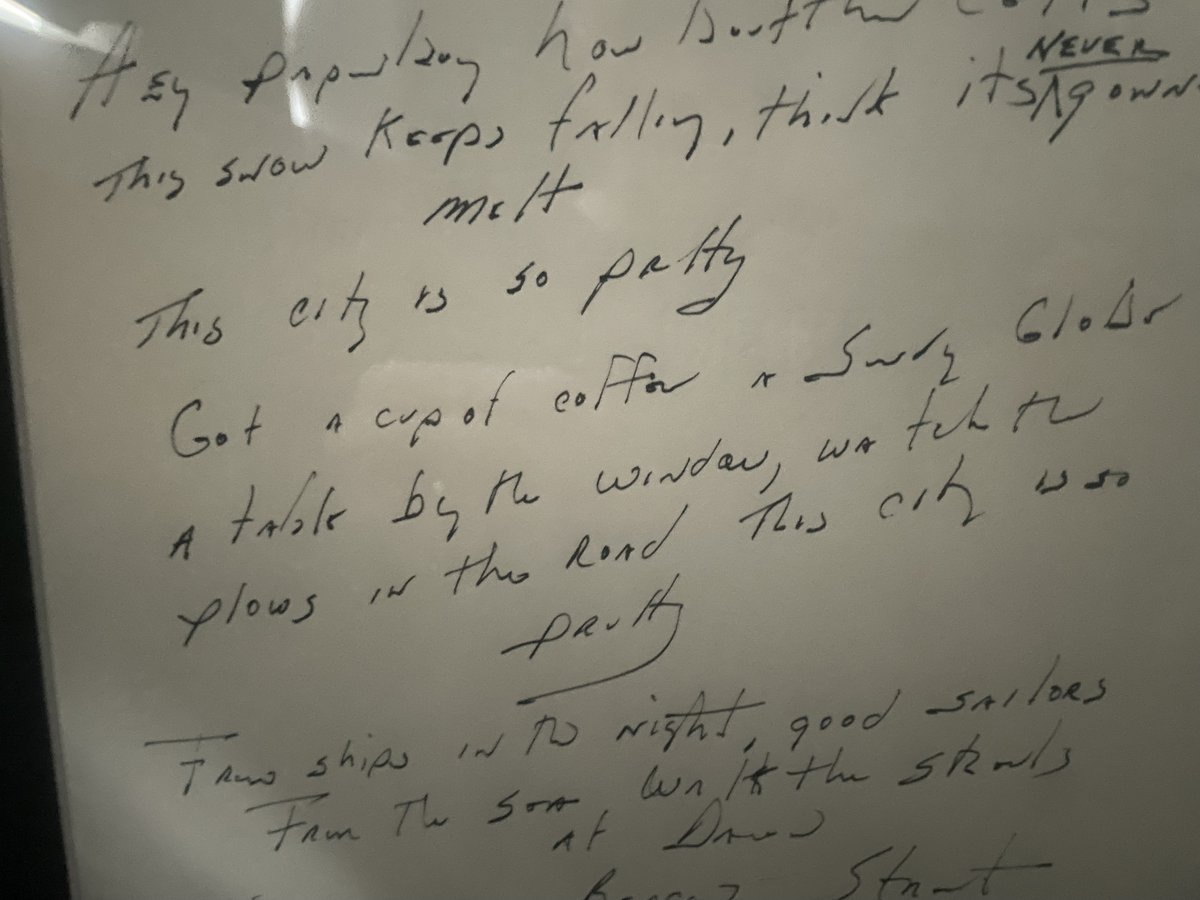 Hey Paperboy how bout them Colts
This snow keeps falling, think its NEVER gonna
melt
This city is so pretty
Got a cup of coffee a Sunday Globe
A table by the window, watch the
plows in the Road This city is so
pretty
ships in the night, good sailors
From the sea, walk the streets
at Dawn
Street